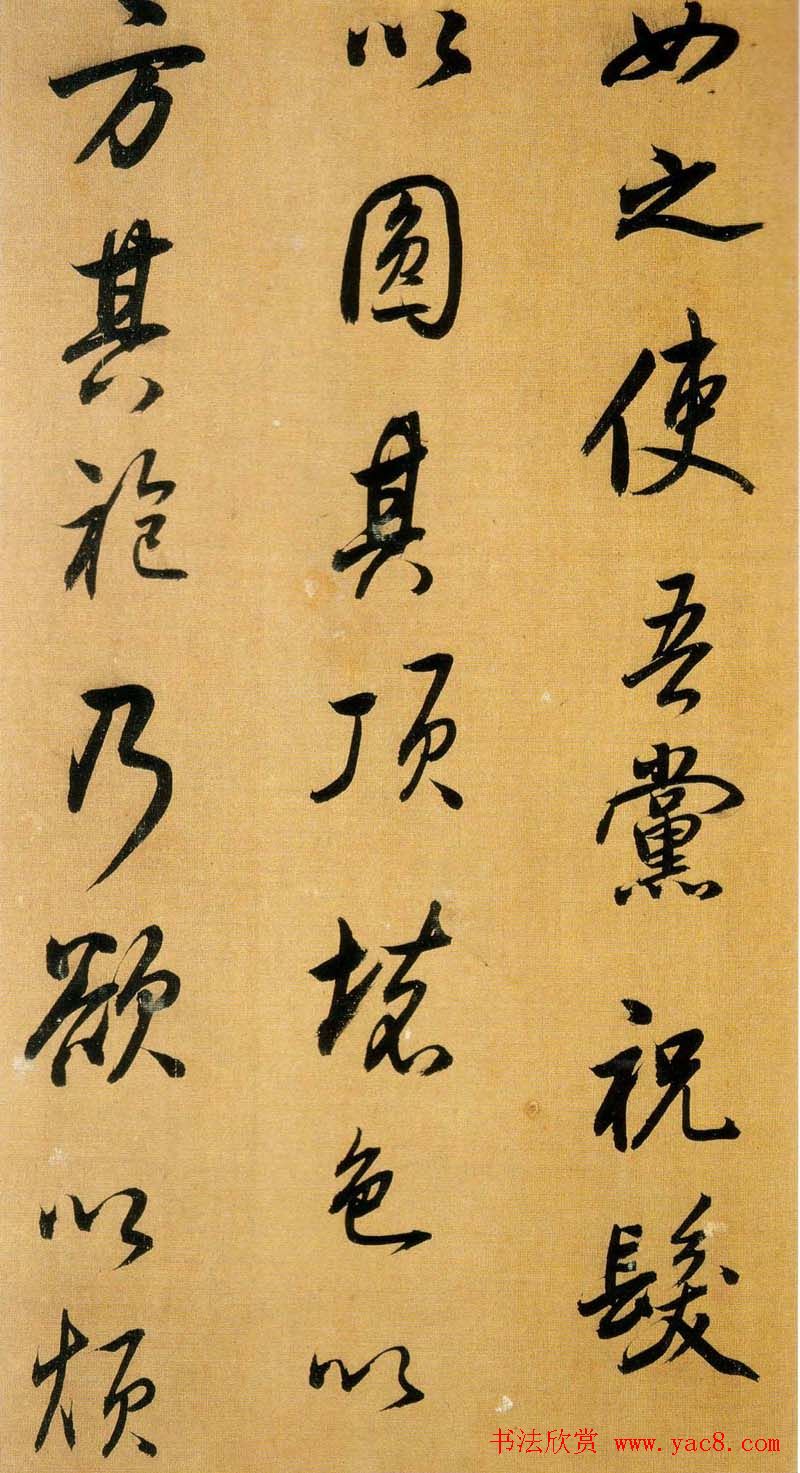 女之使吾黨祝髮
以圓其頂壞色以
方其袍乃欲以煩
书法欣赏 www.yac8.com